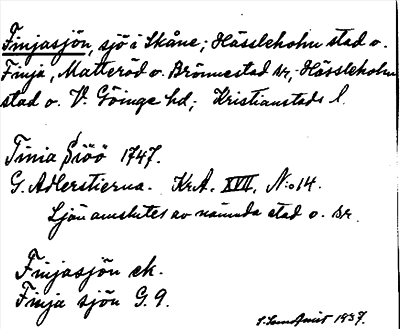 Finjasjön, sjö i Skåne; Hässleholm stad o.
Finja, Matteröd o. Brönnestad sr, Hässleholm
stad o. V. Göinge hd; Kristianstads l.
Finia Siöö 1747.
G. Adlerstierna. KrA. XVII, N:o 14.
Sjön omslutes av nämnda stad o. sr.
Finjasjön ek.
Finja sjön G. 9.
1937.